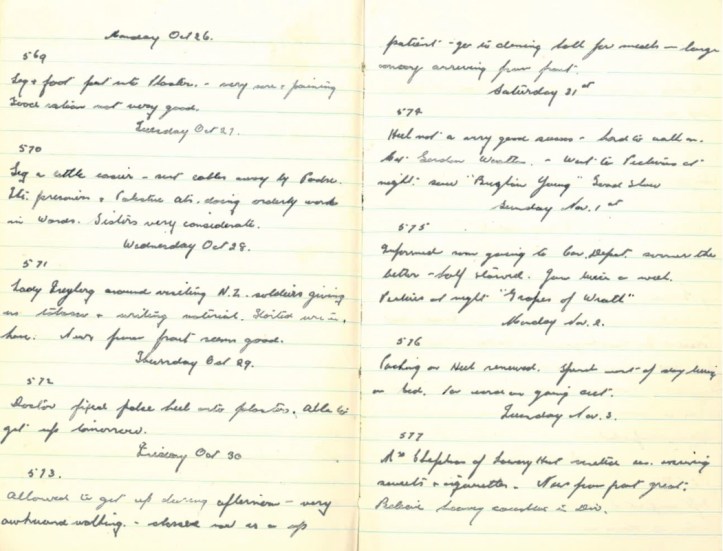 Monday Oct 26.
569
Leg & foot put into Plaster. - very sore & paining
Food ration not very good.
Tuesday Oct 27.
570
Leg a little easier - sent cables away by Padre.
Iti. prisoners & Palestine Ats. doing orderly work
in Wards. Sisters very considerate.
Wednesday Oct 28.
571
Lady Freyberg around visiting N.Z. soldiers giving
us tobacco & writing material. Started
here. News from front seems good.
Thursday Oct 29.
572
Doctor fixed false heel onto plaster. Able to
get up tomorrow.
Friday Oct 30
573.
Allowed to get up during afternoon - very
awkward walking. - classed me as a up
patient - go to dining hall for meals - large
convoy arriving from front.
Saturday 31st
574
Heel not a very good - hard to walk on.
Gordon - Went to Pictures at
night: saw "Brigham Young" Good Show
Sunday Nov. 1st
575
Informed was going to Con. Depot. sooner the
better - half starved. Jam twice a week.
Pictures at night "Grapes of Wrath"
Monday Nov. 2.
576
Packing on Heel renewed. Spent most of day lying
on bed. Too sore on going out.
Tuesday Nov. 3.
577
Mrs Chaplin of Lowry Hut visited us. giving
sweets & cigarettes. News from front great.
Believe heavy casualties in Div.